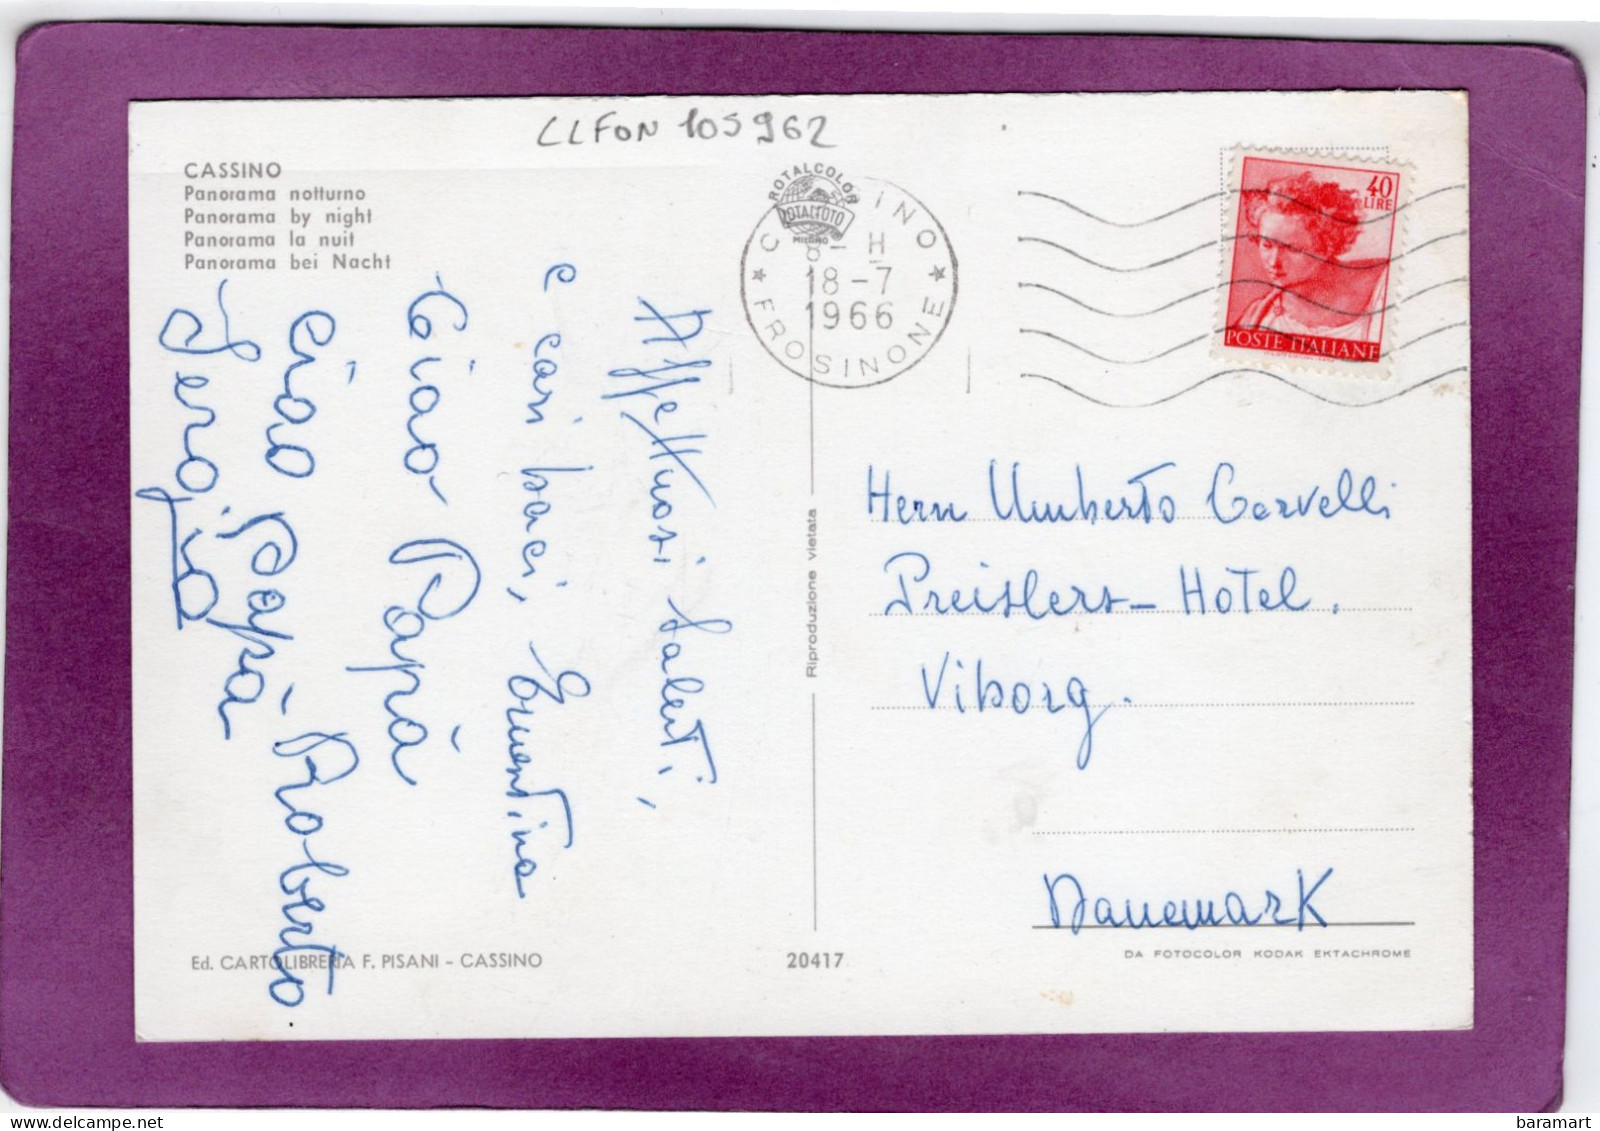 CLFON 105962
CASSINO
Panorama notturno
Panorama by night
Panorama la nuit
Panorama bei Nacht
ROTALCOLOR
ROTALFOTO
MILANO
C INO
8- H
18-7
1966
FROSINONE
40
LIRE
POSTE ITALIANE
Affettuosi saluti,
e cari baci, Ernestina
Ciao Papà
Ciao Papà - Roberto
Sergio
Riproduzione vietata
Herrn Umberto Corvelli
Preislers-Hotel.
Viborg.
Danemark
Ed. CARTOLIBRERIA F. PISANI - CASSINO
20417
DA FOTOCOLOR KODAK EKTACHROME
baramart